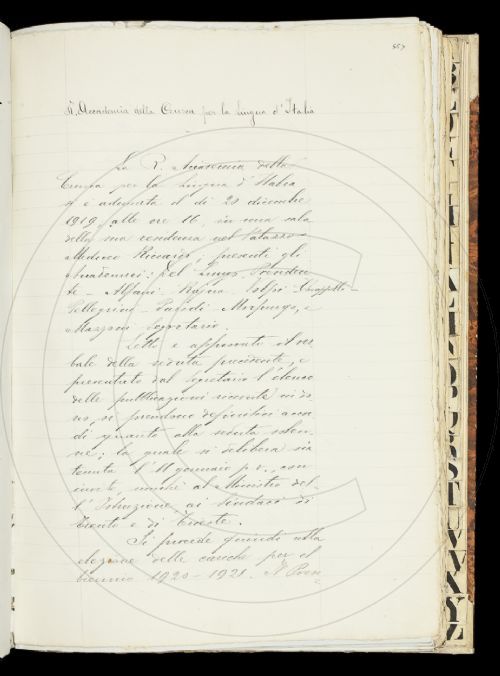 557
R. Accademia della Crusca per la lingua d'Italia
La R. Accademia della
Crusca per la Lingua d'Italia
si è adunata il dì 20 dicembre
1919, alle ore 16, in una sala
della sua residenza nel Palazzo
Mediceo Riccardi, presenti gli
Accademici: Del Lungo Presiden
te - Alfani - Rajna - Volpi -
Pellegrini - Parodi - Morpurgo, e
Mazzoni Segretario.
Letto e approvato il ver
bale della seduta precedente, e
presentato dal Segretario l'elenco
delle pubblicazioni ricevute in do
no, si prendono definitivi accor
di quanto alla seduta solen
ne; la quale si delibera sia
tenuta l'11 gennaio p.v., con
inviti, nonché al Ministro del
l'Istruzione, ai Sindaci di
Trento e di Trieste.
Si procede quindi alla
elezione delle cariche per il
biennio 1920-1921. Il Presi